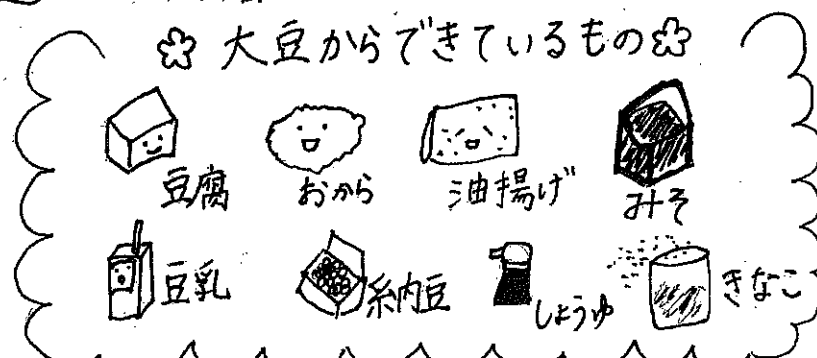 大豆からできているもの
豆腐 おから 油揚げ みそ
豆乳 納豆 しょうゆ きなこ